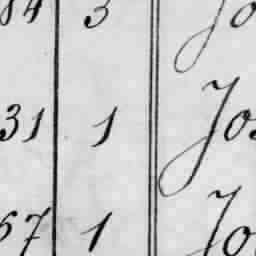 84 3 Jo
31 1 Jos
67 1 Jo